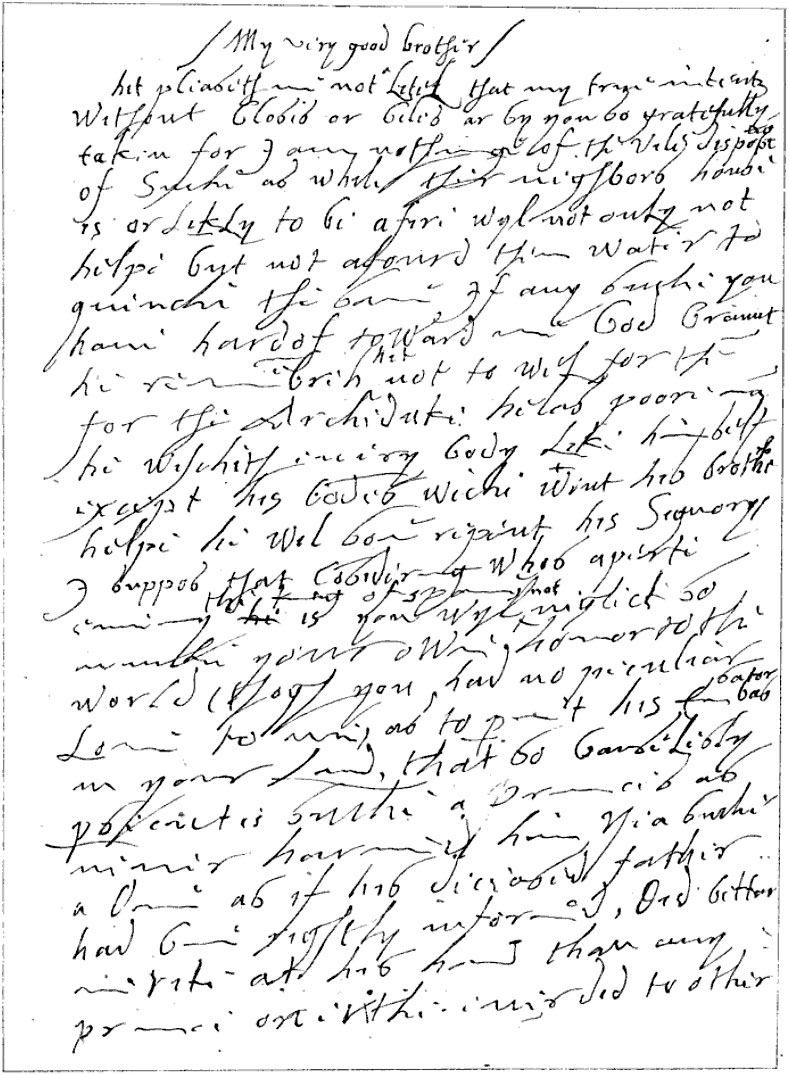 My very good brother
hit pleaseth me not Litel that my true intents
Without Glosis or Giles ar by you so gratefully
taken for I am nothinge of the Viles dispose
of Suche as while ther neighbors house
is or Likly to be afire wyl not only not
helpe byt not afourd them Water to
quenche the same If any suche you
have hardof toWard me God Graunt
he remembreth hit not to wel for the
for the Archiduke helas poore man
he Wischith every body Like himself
except his bodes wiche wtout his brothers
helpe he Wel soune repent his Segnory
I suppos that Considering Whos aperte
enimy the king of spain is you wyl not neglict so
muche your oWne, honor to the
World thogh you, had no peculiar
Love to me, as to permit his Embassator
in your Land, that so causelesly
prosecutes suche a Princes as
never harmed him Yea suche
a One as if his deceased father
had bene rightly informed, did better
merite at his hand than any
prince on erthe ever did to other